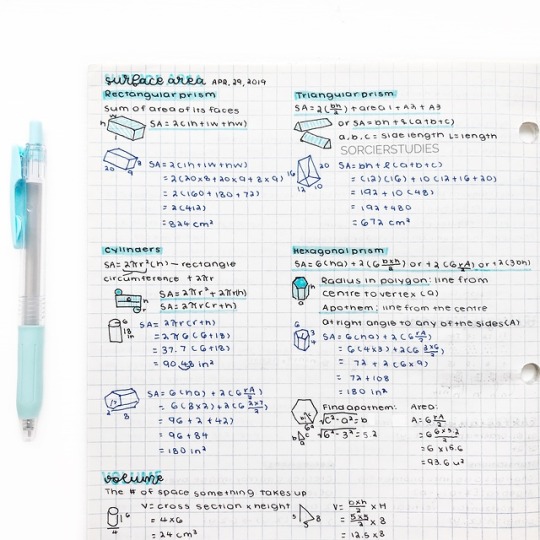 surface area APR. 29, 2019
Rectangular prism
Sum of area of its faces
SA = 2(lh+lw+hw)
SA = 2(lh+lw+hw)
= 2(20x8+20x9+8x9)
= 2(160+180+72)
= 2(412)
= 824 cm²
20
9
Triangular prism
SA = 2(bh/2) + area 1 + A2 + A3
or SA = bh + l(a+b+c)
a, b, c = side length l = length
SORCIERSTUDIES
SA = bh + l(a+b+c)
= (12)(16) + 10(12+16+20)
= 192 + 10(48)
= 192 + 480
= 672 cm²
16
20
12
10
Cylinders
SA = 2πr²(h) — rectangle
circumference + 2πr
SA = 2πr² + 2πr(h)
SA = 2πr(r+h)
SA = 2πr(r+h)
= 2π6(6+18)
= 37.7(6+18)
in²
6
18
in
SA = 6(ha) + 2(6 rA/2)
= 6(8x2) + 2(6 2x7/2)
= 96 + 2(42)
= 96 + 84
= 180 in²
2
8
Hexagonal prism
SA = 6(ha) + 2(6 bxh/2) or + 2(6 rA/2) or + 2(3bh)
Radius in polygon: line from
centre to vertex (a)
Apothem: line from the centre
at right angle to any of the sides (A)
SA = 6(ha) + 2(6 rA/2)
= 6(4x3) + 2(6 3x6/2)
= 72 + 2(6x9)
= 72 + 108
= 180 in²
Find apothem:
√c²-a² = b
√6²-3² = 5.2
Area:
A = 6 rA/2
= 6 6x5.2/2
= 6 x 15.6
= 93.6 u²
volume
The # of space something takes up
V = cross section x height
= 4x6
= 24 cm³
6
4
V = bxh/2 x H
= 5x5/2 x 8
= 12.5 x 8
5
8